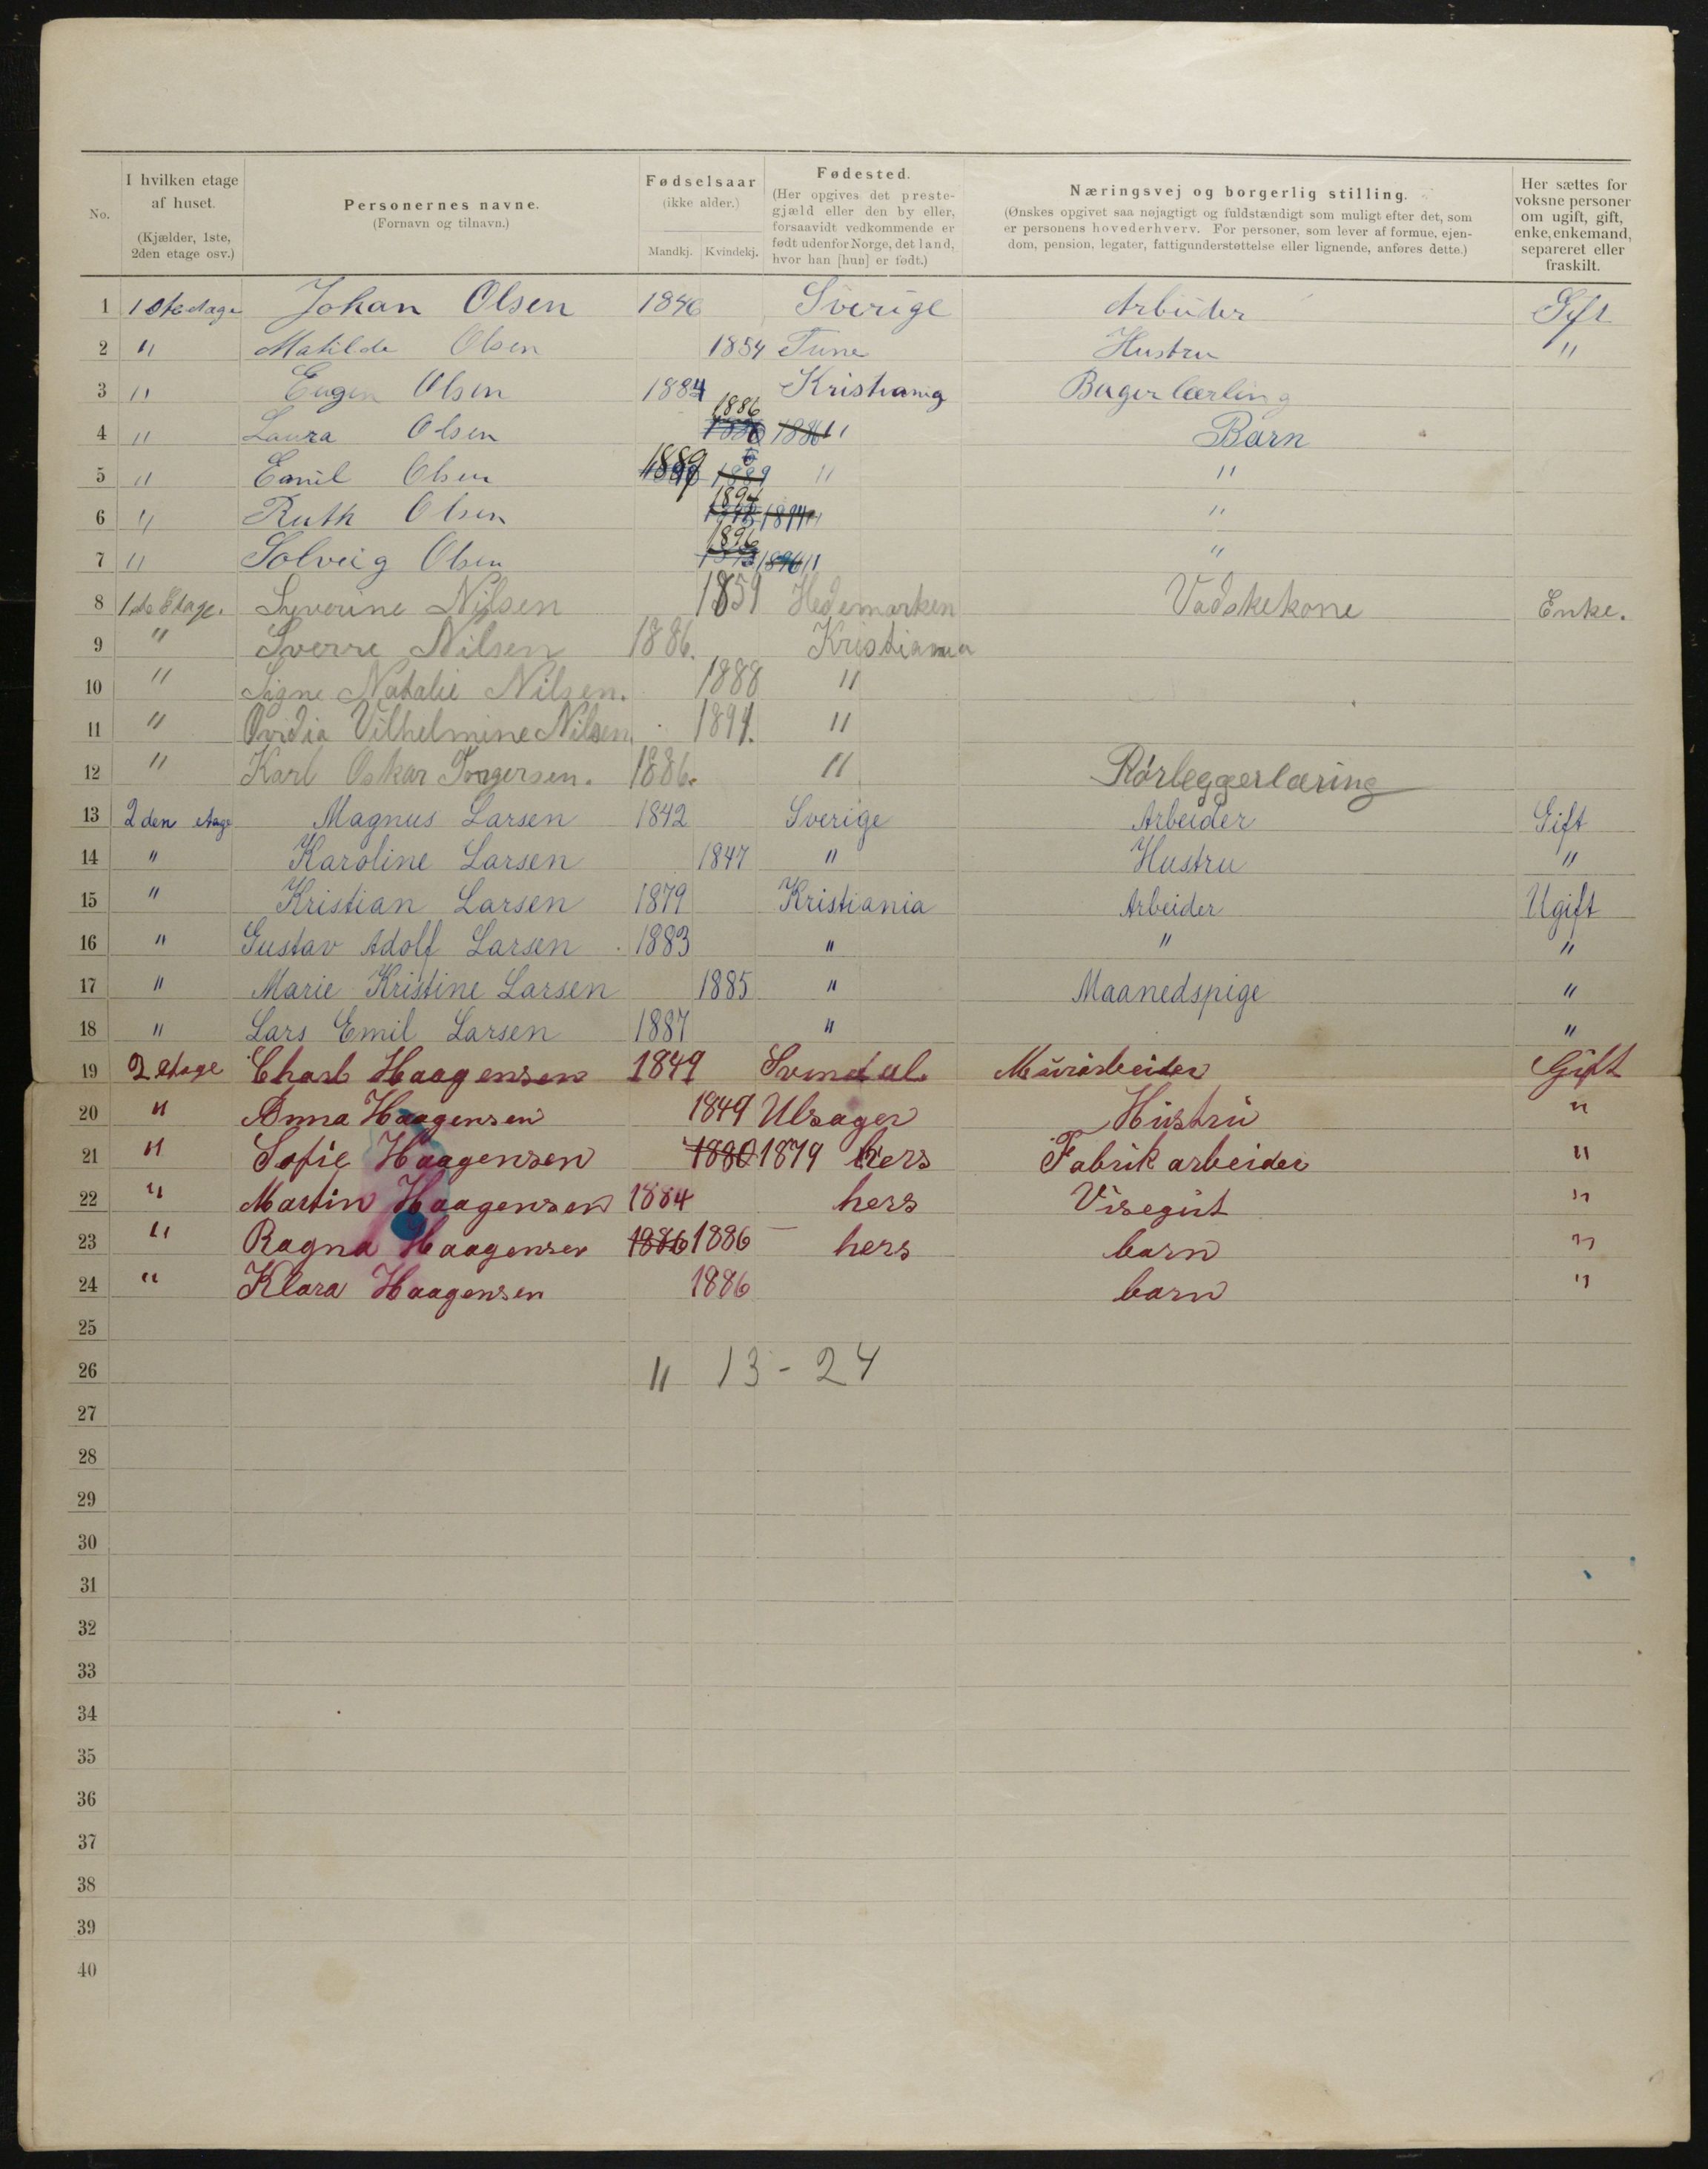 No. | I hvilken etage af huset. (Kjælder, 1ste, 2den etage osv.) | Personernes navne. (Fornavn og tilnavn.) | Fødselsaar (ikke alder.) Mandkj. Kvindekj. | Fødested. (Her opgives det prestegjæld eller den by eller, forsaavidt vedkommende er født udenfor Norge, det land, hvor han [hun] er født.) | Næringsvej og borgerlig stilling. (Ønskes opgivet saa nøjagtigt og fuldstændigt som muligt efter det, som er personens hovederhverv. For personer, som lever af formue, ejendom, pension, legater, fattigunderstøttelse eller lignende, anføres dette.) | Her sættes for voksne personer om ugift, gift, enke, enkemand, separeret eller fraskilt.
1 1ste etage Johan Olsen 1846 Sverige Arbeider Gift
2 " Matilde Olsen 1854 Tune Hustru "
3 " Eugen Olsen 1884 Kristiania Bagerlærling
4 " Laura Olsen 1886 1886 " Barn
5 " Emil Olsen 1889 1889 " "
6 " Ruth Olsen 1894 1894 " "
7 " Solveig Olsen 1896 1896 " "
8 1ste Etage. Syverine Nilsen 1859 Hedemarken Vadskekone Enke.
9 " Sverre Nilsen 1886. Kristiania
10 " Signe Natalie Nilsen. 1888 "
11 " Ovidia Vilhelmine Nilsen 1891. "
12 " Karl Oskar Torgersen. 1886. " Rørleggerlæring
13 2den etage Magnus Larsen 1842 Sverige Arbeider Gift
14 " Karoline Larsen 1847 " Hustru "
15 " Kristian Larsen 1879 Kristiania Arbeider Ugift
16 " Gustav Adolf Larsen 1883 " " "
17 " Marie Kristine Larsen 1885 " Maanedspige "
18 " Lars Emil Larsen 1887 " "
19 2 etage Charl Haagensen 1849 Svindal Murarbeider Gift
20 " Anna Haagensen 1849 Ulsager Hustru "
21 " Sofie Haagensen 1880 1879 hers Fabrikarbeider "
22 " Martin Haagensen 1884 hers Visegut "
23 " Ragna Haagensen 1886 1886 – hers barn "
24 " Klara Haagensen 1886 barn "
25
26 11 13-24
27
28
29
30
31
32
33
34
35
36
37
38
39
40